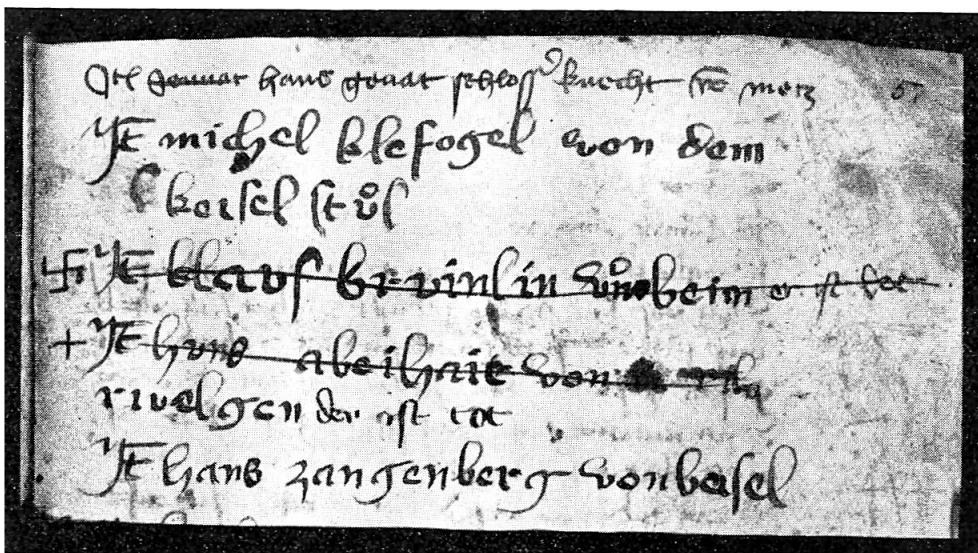 Itē hans gouat schlosser knecht vō metz
Itē michel klefogel von dem
keisel stůl
Itē klaus brvinlin er ist tot
Itē hans abeihait von
rivelgen der ist tot
Itē hans zangenberg von beisel